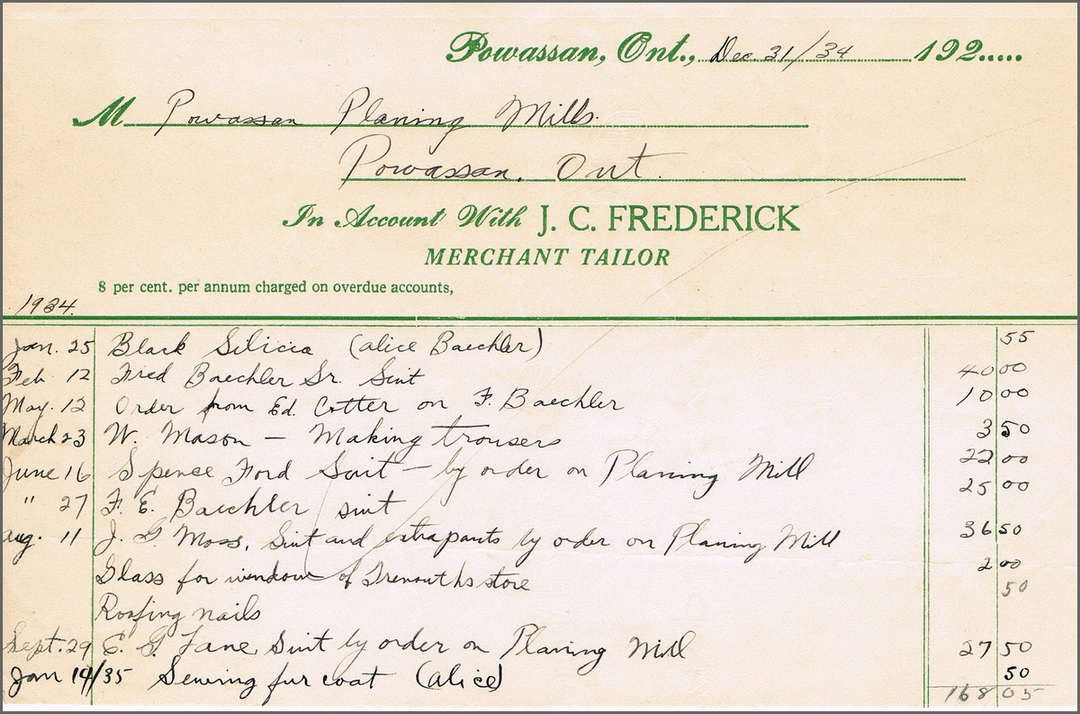 Powassan, Ont., Dec 31/34 192.....
M Powassan Planing Mills.
Powassan, Ont.
In Account With J. C. FREDERICK
MERCHANT TAILOR
8 per cent. per annum charged on overdue accounts,
1934.
Jan. 25 Black Silicia (Alice Baechler) 55
Feb 12 Fred Baechler Sr. Suit 40 00
May. 12 Order from Ed. Cotter on F. Baechler 10 00
March 23 W. Mason - Making trousers 3 50
June 16 Spence Ford Suit - by order on Planing Mill 22 00
" 27 F. E. Baechler suit 25 00
Aug. 11 J. G. Moss, Suit and extra pants by order on Planing Mill 36 50
Glass for window of Trenouths store 2 00
Roofing nails 50
Sept. 29 E. G. Lane Suit by order on Planing Mill 27 50
Jan 14/35 Sewing fur coat (Alice) 50
168 05